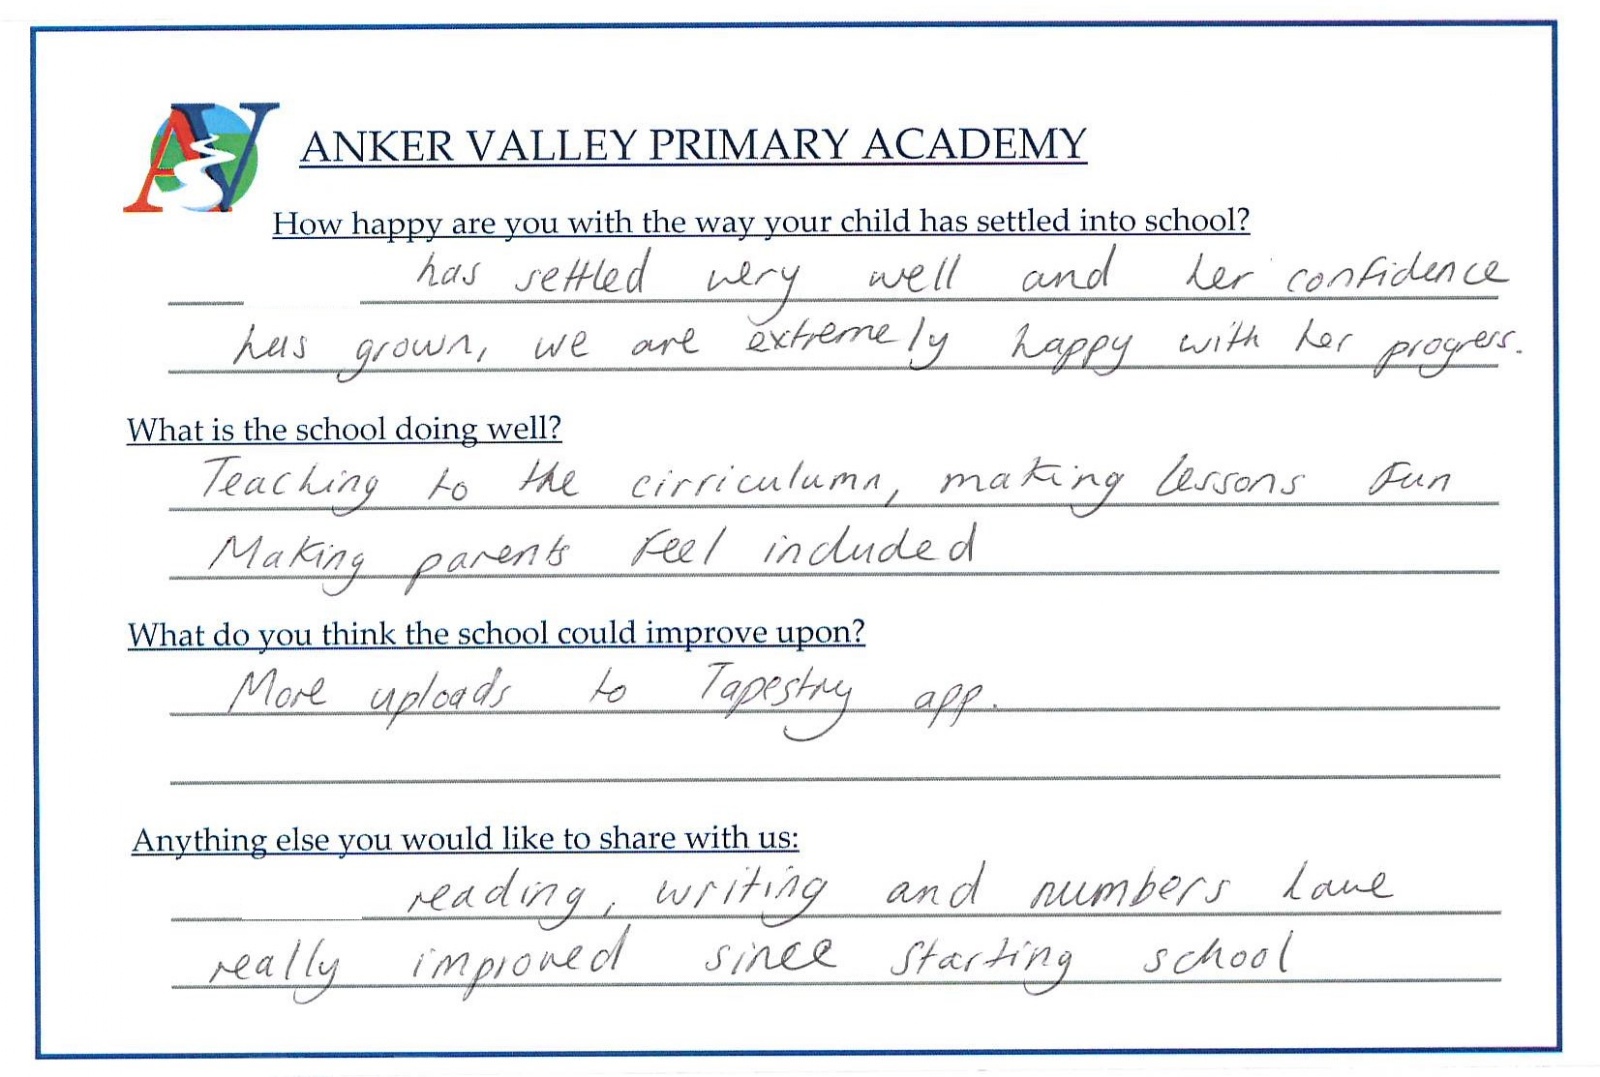 AV
ANKER VALLEY PRIMARY ACADEMY
How happy are you with the way your child has settled into school?
has settled very well and her confidence
has grown, we are extremely happy with her progress.
What is the school doing well?
Teaching to the cirriculumn, making lessons fun
Making parents feel included
What do you think the school could improve upon?
More uploads to Tapestry app.
Anything else you would like to share with us:
reading, writing and numbers have
really improved since starting school